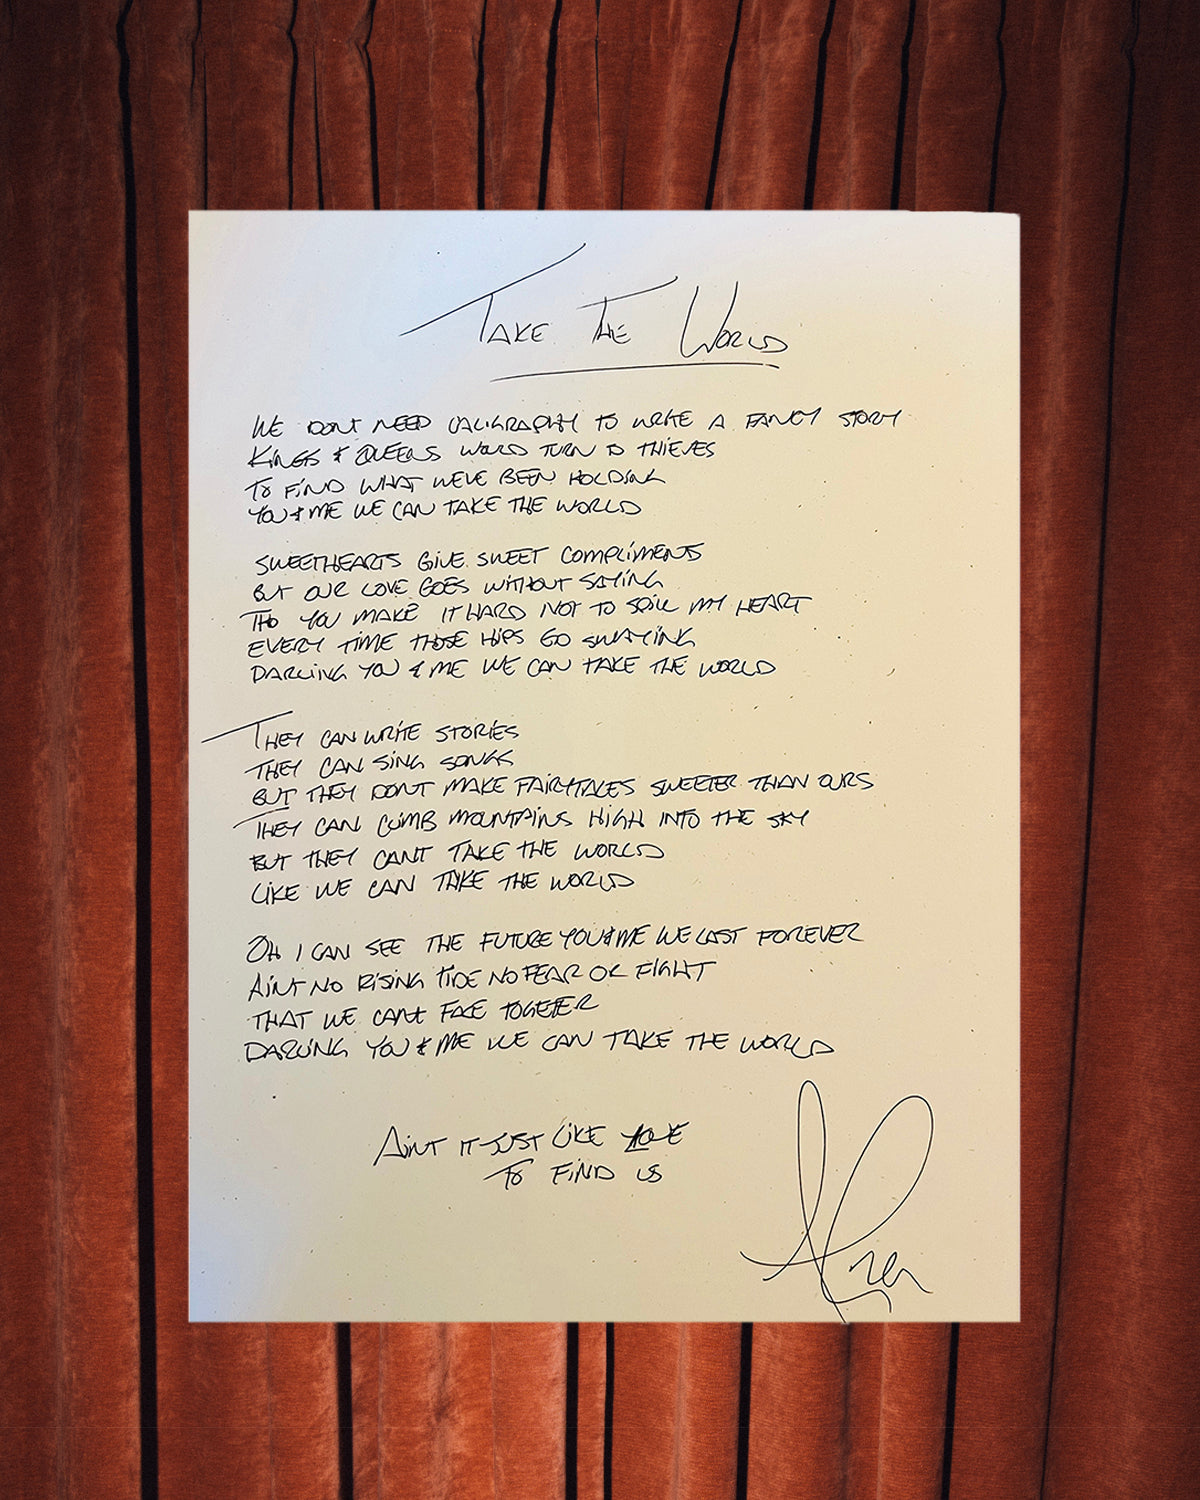 TAKE THE WORLD
WE DONT NEED CALIGRAPHY TO WRITE A FANCY STORY
KINGS & QUEENS WOULD TURN TO THIEVES
TO FIND WHAT WEVE BEEN HOLDING
YOU & ME WE CAN TAKE THE WORLD
SWEETHEARTS GIVE SWEET COMPLIMENTS
BUT OUR LOVE GOES WITHOUT SAYING
THO YOU MAKE IT HARD NOT TO SPILL MY HEART
EVERY TIME THOSE HIPS GO SWAYING
DARLING YOU & ME WE CAN TAKE THE WORLD
THEY CAN WRITE STORIES
THEY CAN SING SONGS
BUT THEY DONT MAKE FAIRYTALES SWEETER THAN OURS
THEY CAN CLIMB MOUNTAINS HIGH INTO THE SKY
BUT THEY CANT TAKE THE WORLD
LIKE WE CAN TAKE THE WORLD
OH I CAN SEE THE FUTURE YOU & ME WE LAST FOREVER
AINT NO RISING TIDE NO FEAR OR FIGHT
THAT WE CANT FACE TOGETER
DARLING YOU & ME WE CAN TAKE THE WORLD
AINT IT JUST LIKE LOVE
TO FIND US